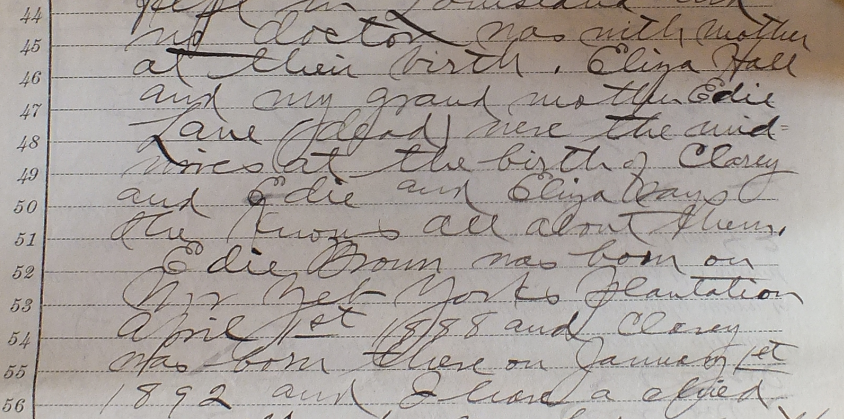 44 here in Louisiana and
45 no doctor was with mother
46 at their birth. Eliza Hall
47 and my grand mother Edie
48 Lane (dead) were the mid=
49 wives at the birth of Clarey
50 and Edie and Eliza says
51 she knows all about them.
52 Edie Brown was born on
53 Mr Yorks plantation
54 April 1st 1888 and Clarey
55 was born there on January 1st
56 1892 and I have a